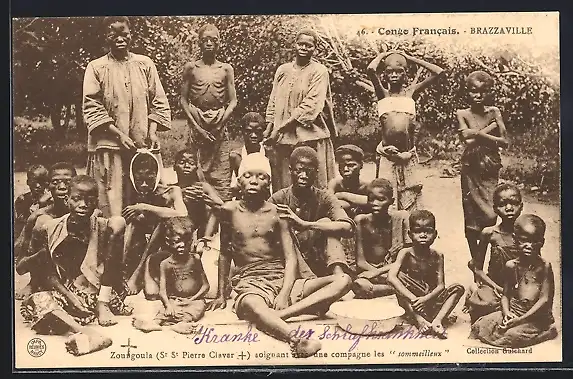 46. - Congo Français. - BRAZZAVILLE
Kranke der Schlafkrankheit
Zoungoula (St St Pierre Claver +) soignant avec une compagne les "sommeilleux"
Collection Guichard